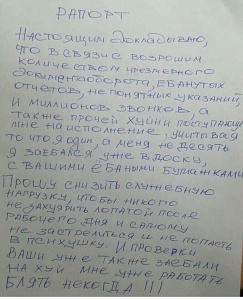 РАПОРТ
Настоящим докладываю,
что в связи с возросшим
количеством чрезмерного
документооборота, ебанутых
отчетов, не понятных указаний,
и миллионов звонков, а
также прочей хуйни поступающей
мне на исполнение, учитывая
то что я один, а меня не десять
я заебался уже в доску,
с вашими ебаными бумажками
Прошу снизить служебную
нагрузку, чтобы никого
не захуярить лопатой после
рабочего дня и самому
не застрелиться и не попасть
в психушку. И проверки
ваши уже также заебали
на хуй мне уже работать
блять некогда!!!